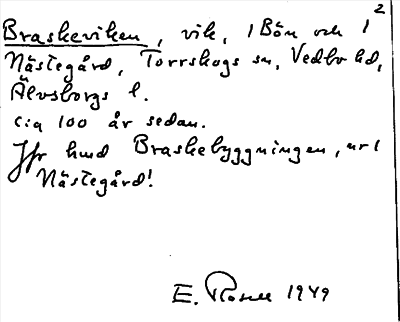 2
Braskeviken, vik, 1 Bön och 1
Nästegård, Torrskogs sn, Vedbo hd,
Älvsborgs l.
cia 100 år sedan.
Jfr hmd Braskebyggningen, ur 1
Nästegård!
E. Rosell 1949